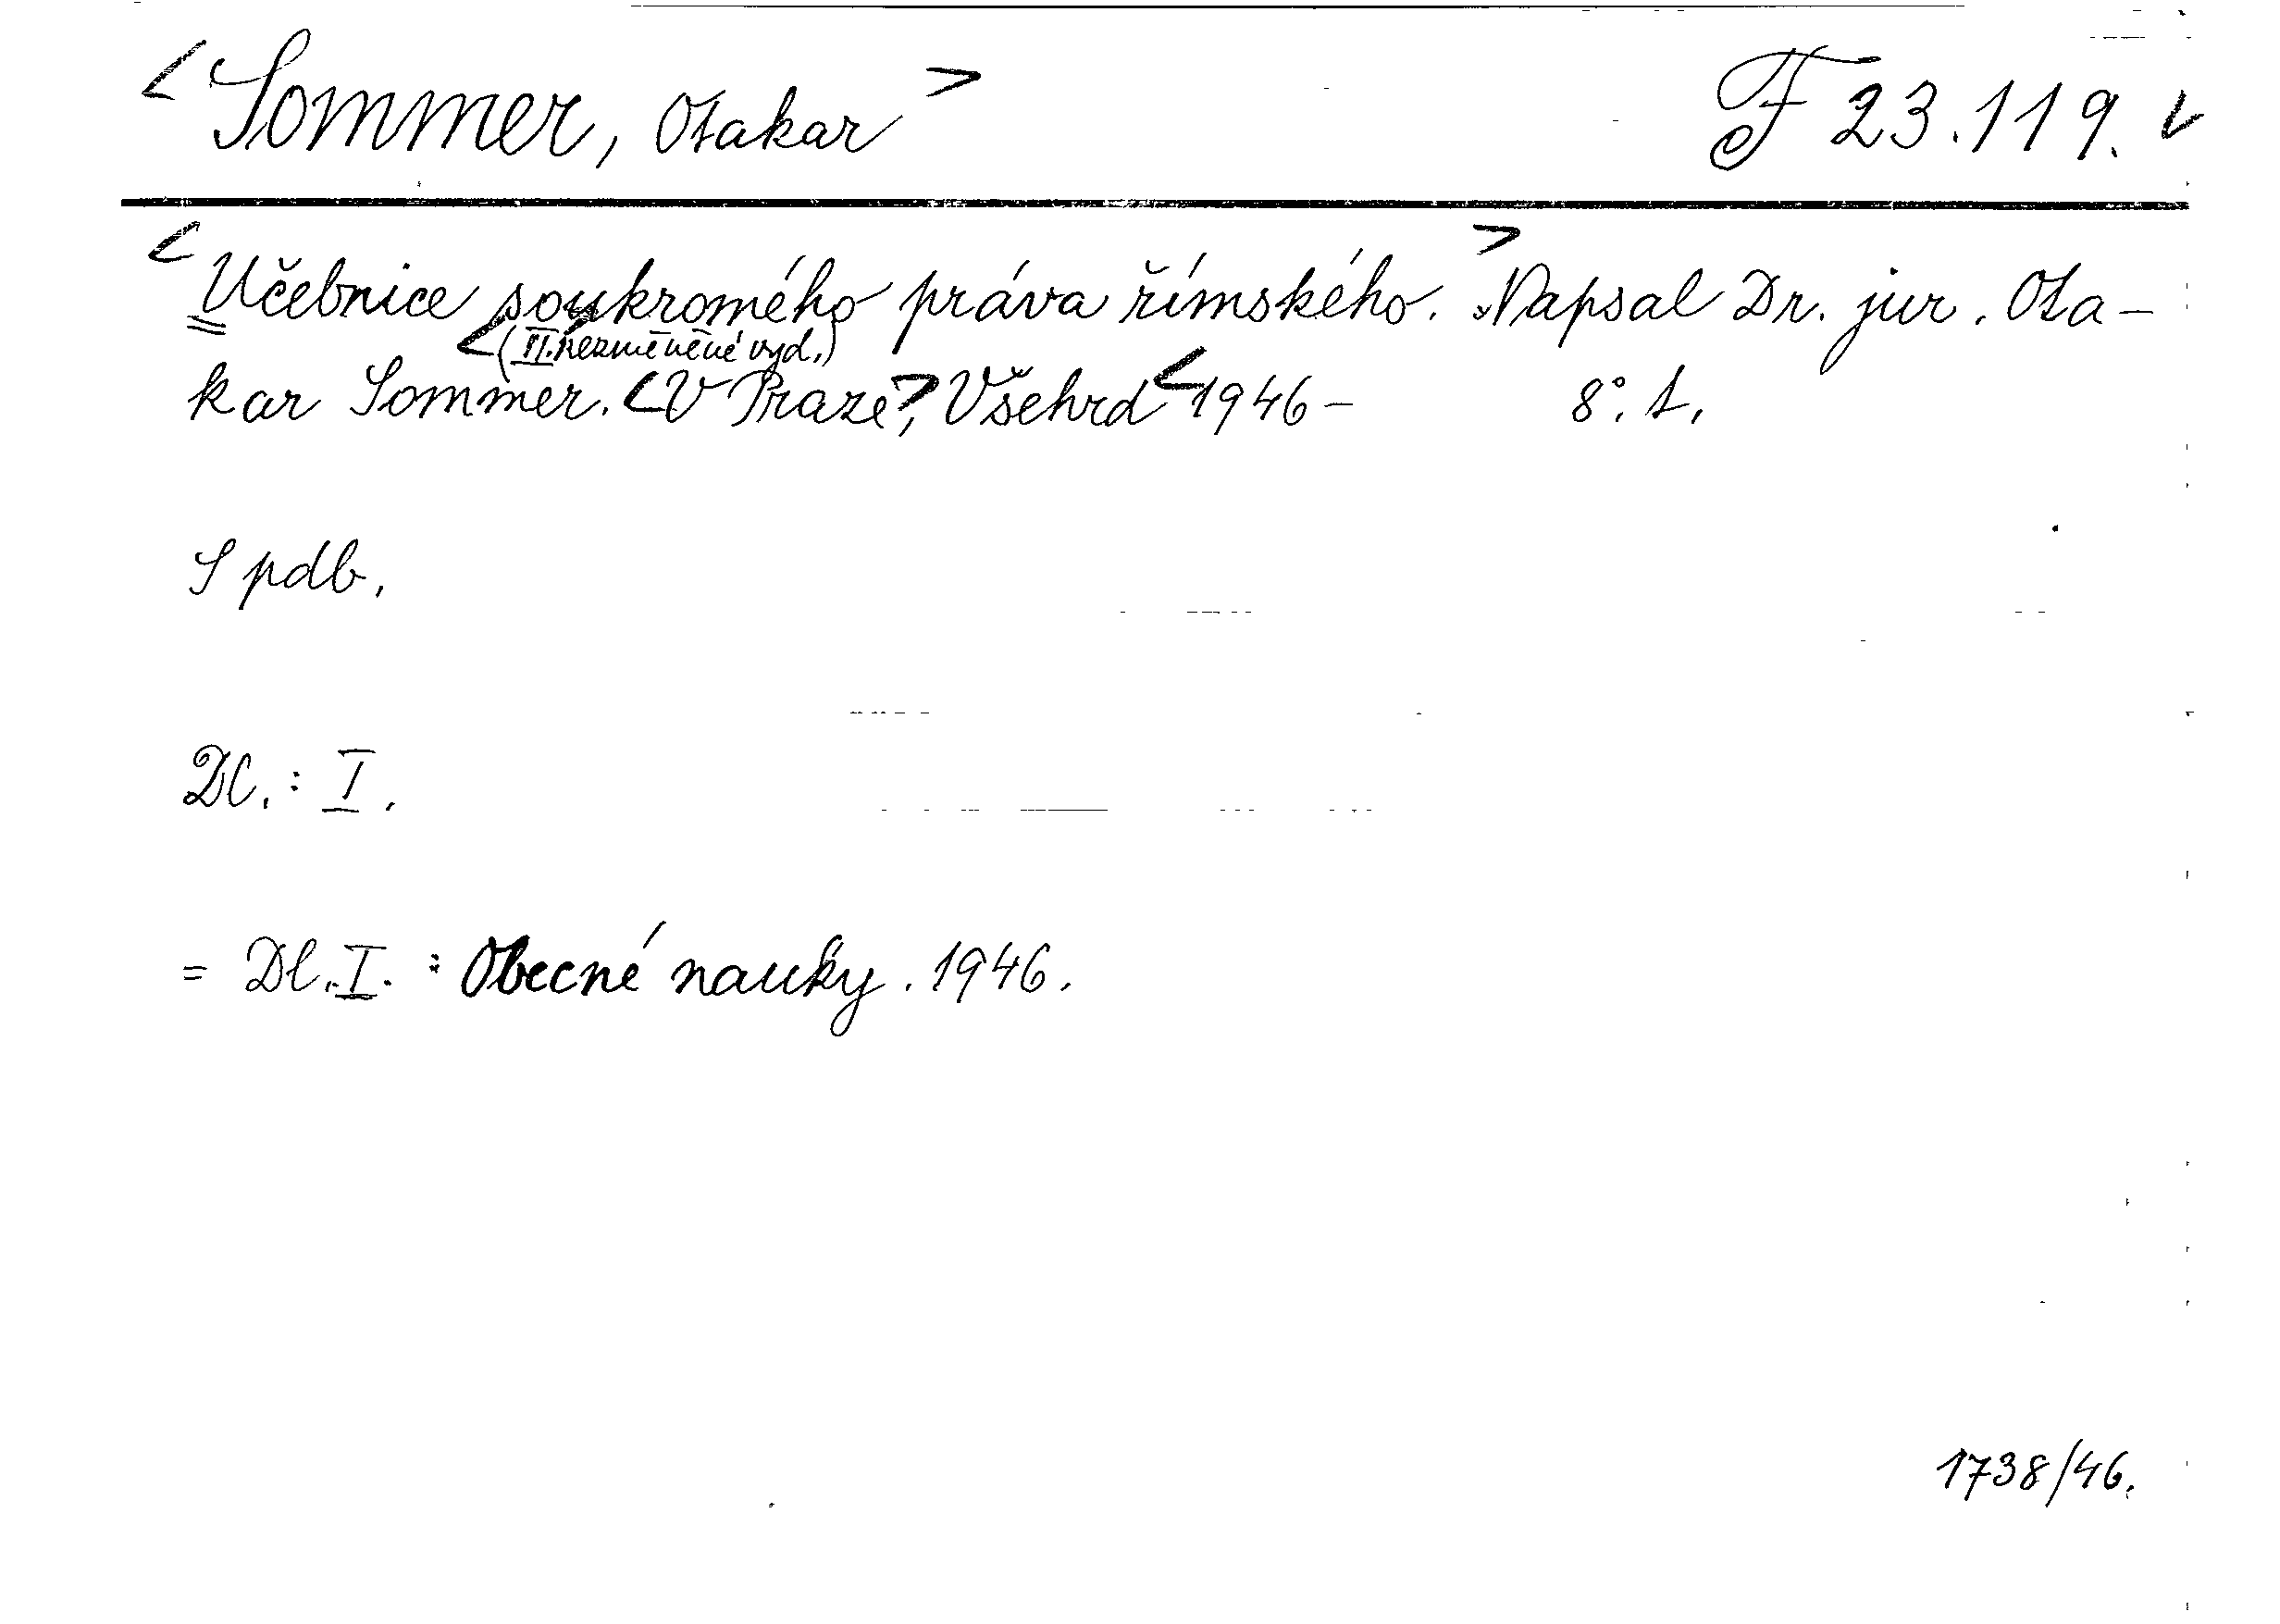 <Sommer, Otakar> F 23.119.
<Učebnice soukromého práva římského.> Napsal Dr. jur. Ota-
<(II. nezměněné vyd.,)
kar Sommer. <V Praze>, Všehrd <1946- 8°.
S pdb.
Dl.: I.
= Dl. I. : Obecné nauky. 1946.
1738/46.